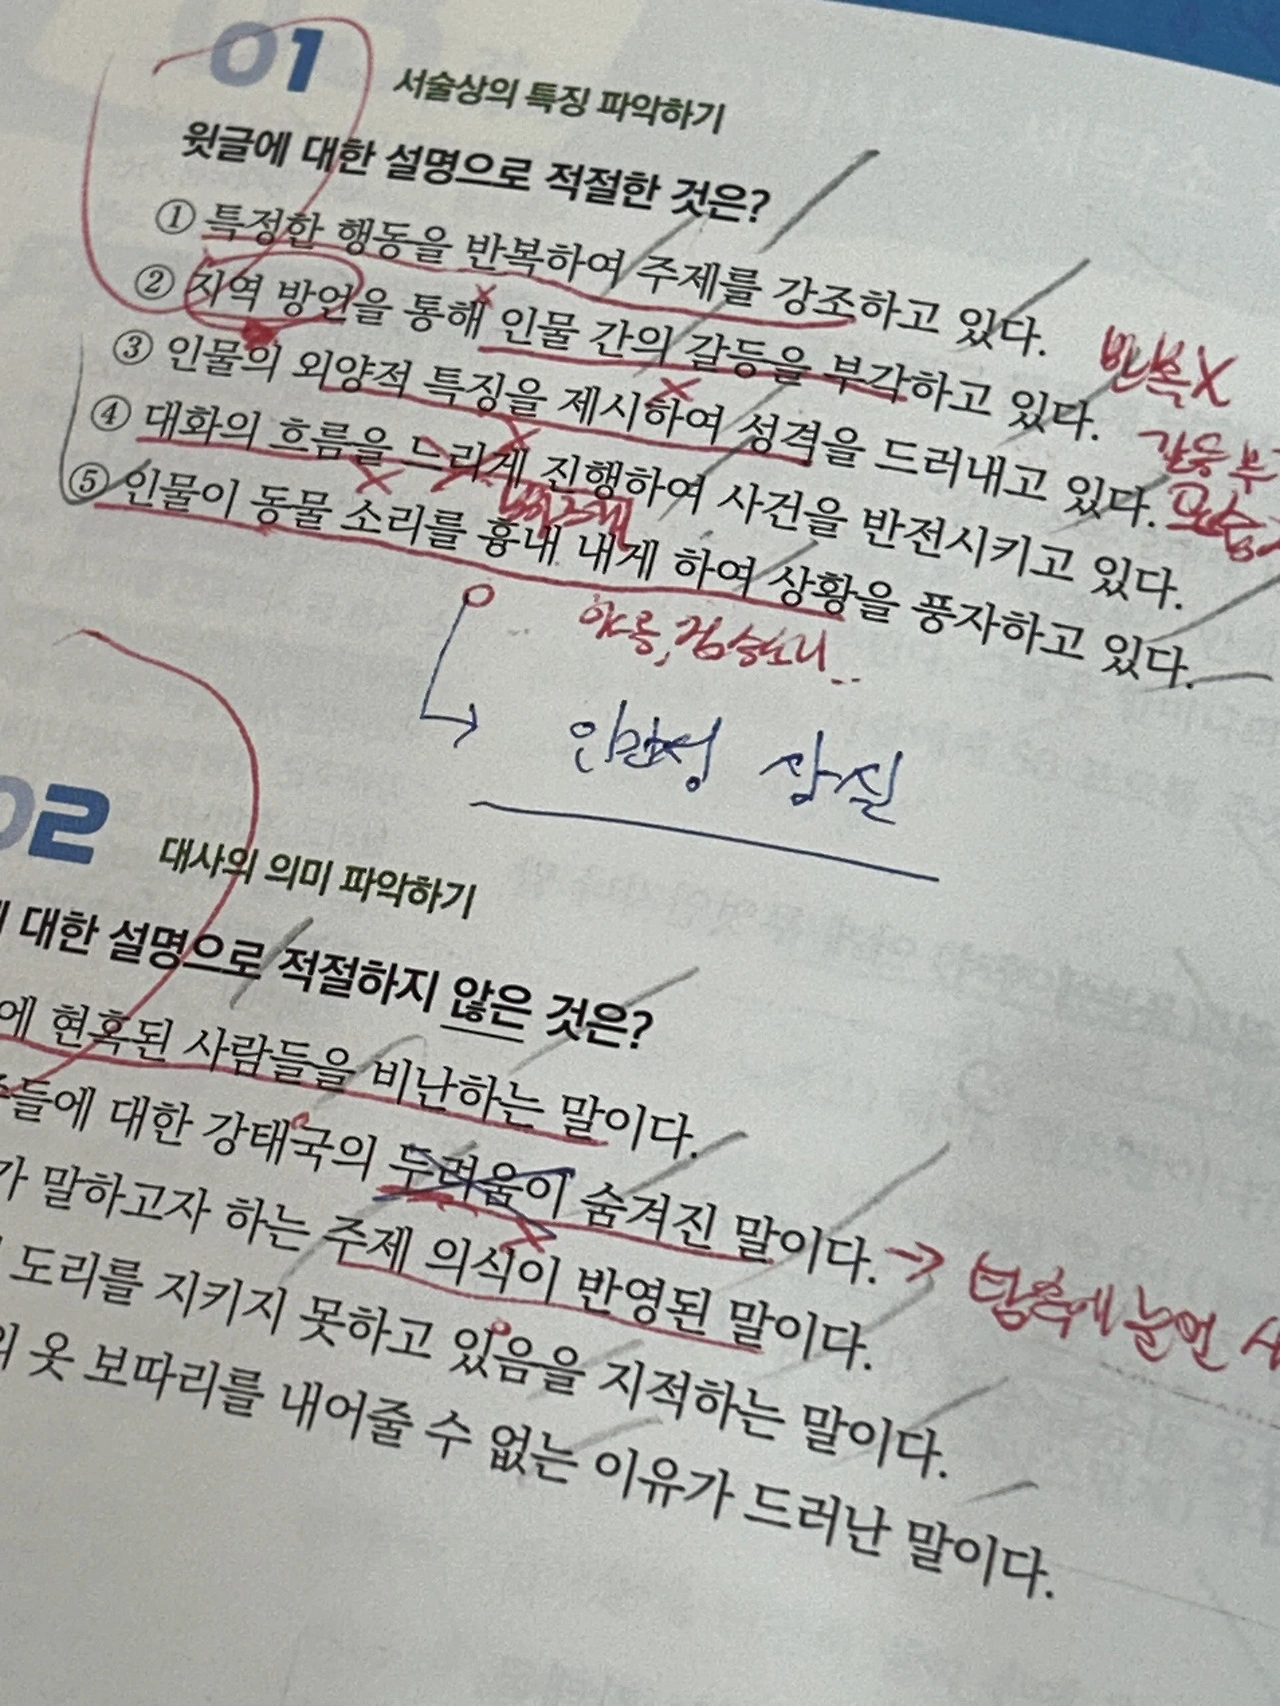 01 서술상의 특징 파악하기
윗글에 대한 설명으로 적절한 것은?
① 특정한 행동을 반복하여 주제를 강조하고 있다.
반복X
② 지역 방언을 통해 인물 간의 갈등을 부각하고 있다.
갈등 부
③ 인물의 외양적 특징을 제시하여 성격을 드러내고 있다.
④ 대화의 흐름을 느리게 진행하여 사건을 반전시키고 있다.
빠르게
⑤ 인물이 동물 소리를 흉내 내게 하여 상황을 풍자하고 있다.
인간성 상실
02 대사의 의미 파악하기
대한 설명으로 적절하지 않은 것은?
에 현혹된 사람들을 비난하는 말이다.
들에 대한 강태국의 두려움이 숨겨진 말이다.
→ 탐욕에 눈먼
가 말하고자 하는 주제 의식이 반영된 말이다.
도리를 지키지 못하고 있음을 지적하는 말이다.
의 옷 보따리를 내어줄 수 없는 이유가 드러난 말이다.